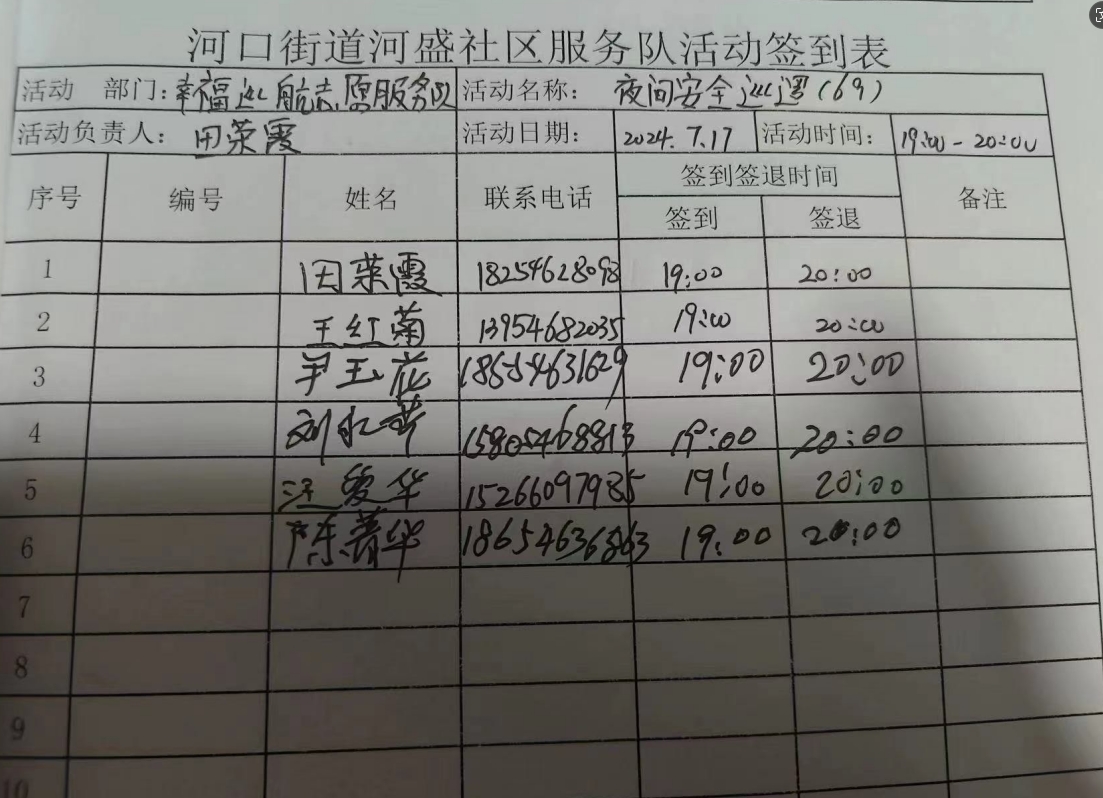 河口街道河盛社区服务队活动签到表
活动 部门：幸福巡航志愿服务队 活动名称： 夜间安全巡逻（69）
活动负责人： 田荣霞 活动日期： 2024.7.17 活动时间： 19:00-20:00
序号 编号 姓名 联系电话 签到签退时间 备注
签到 签退
1 田荣霞 18254628098 19:00 20:00
2 王红菊 13954682035 19:00 20:00
3 尹玉花 18654631629 19:00 20:00
4 刘 15805468813 19:00 20:00
5 汪爱华 15266097985 19:00 20:00
6 陈菁华 18654636863 19:00 20:00
7
8
9
10